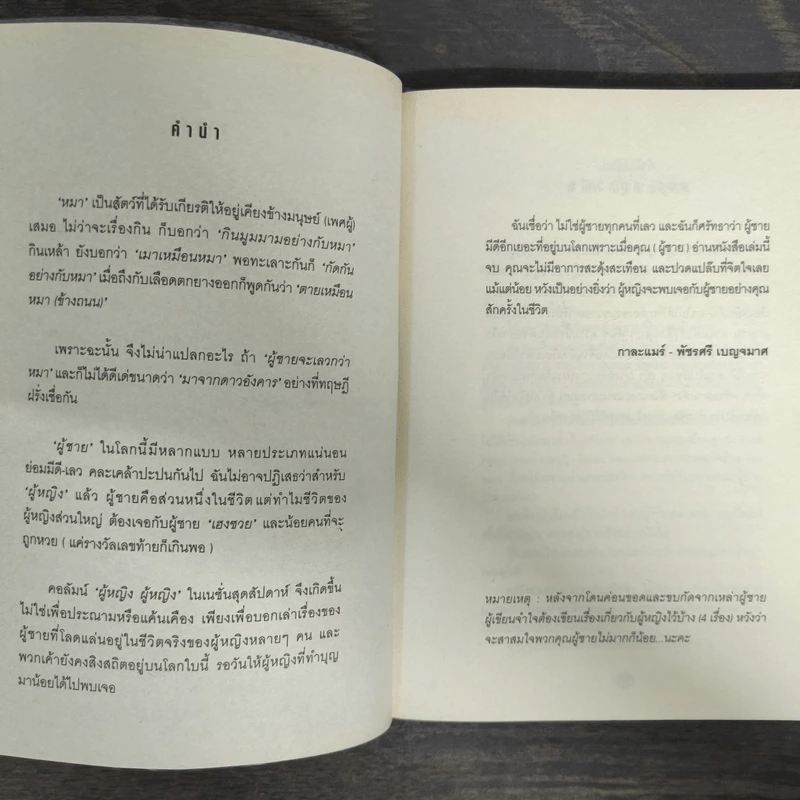 คำนำ
'หมา' เป็นสัตว์ที่ได้รับเกียรติให้อยู่เคียงข้างมนุษย์ (เพศผู้)
เสมอ ไม่ว่าจะเรื่องกิน ก็บอกว่า 'กินมูมมามอย่างกับหมา'
กินเหล้า ยังบอกว่า 'เมาเหมือนหมา' พอทะเลาะกันก็ 'กัดกัน
อย่างกับหมา' เมื่อถึงกับเลือดตกยางออกก็พูดกันว่า 'ตายเหมือน
หมา (ข้างถนน)'
เพราะฉะนั้น จึงไม่น่าแปลกอะไร ถ้า 'ผู้ชายจะเลวกว่า
หมา' และก็ไม่ได้ดีเด่ขนาดว่า 'มาจากดาวอังคาร' อย่างที่ทฤษฎี
ฝรั่งเชื่อกัน
'ผู้ชาย' ในโลกนี้มีหลากแบบ หลายประเภทแน่นอน
ย่อมมีดี-เลว คละเคล้าปะปนกันไป ฉันไม่อาจปฏิเสธว่าสำหรับ
'ผู้หญิง' แล้ว ผู้ชายคือส่วนหนึ่งในชีวิต แต่ทำไมชีวิตของ
ผู้หญิงส่วนใหญ่ ต้องเจอกับผู้ชาย 'เฮงซวย' และน้อยคนที่จะ
ถูกหวย ( แค่รางวัลเลขท้ายก็เกินพอ )
คอลัมน์ 'ผู้หญิง ผู้หญิง' ในเนชั่นสุดสัปดาห์ จึงเกิดขึ้น
ไม่ใช่เพื่อประณามหรือแค้นเคือง เพียงเพื่อบอกเล่าเรื่องของ
ผู้ชายที่โลดแล่นอยู่ในชีวิตจริงของผู้หญิงหลายๆ คน และ
พวกเค้ายังคงสิงสถิตอยู่บนโลกใบนี้ รอวันให้ผู้หญิงที่ทำบุญ
มาน้อยได้ไปพบเจอ
ฉันเชื่อว่า ไม่ใช่ผู้ชายทุกคนที่เลว และฉันก็ศรัทธาว่า ผู้ชาย
มีดีอีกเยอะที่อยู่บนโลกเพราะเมื่อคุณ ( ผู้ชาย ) อ่านหนังสือเล่มนี้
จบ คุณจะไม่มีอาการสะดุ้งสะเทือน และปวดแปล๊บที่จิตใจเลย
แม้แต่น้อย หวังเป็นอย่างยิ่งว่า ผู้หญิงจะพบเจอกับผู้ชายอย่างคุณ
สักครั้งในชีวิต
กาละแมร์ - พัชรศรี เบญจมาศ
หมายเหตุ : หลังจากโดนค่อนขอดและขบกัดจากเหล่าผู้ชาย
ผู้เขียนจำใจต้องเขียนเรื่องเกี่ยวกับผู้หญิงไว้บ้าง (4 เรื่อง) หวังว่า
จะสาสมใจพวกคุณผู้ชายไม่มากก็น้อย...นะคะ